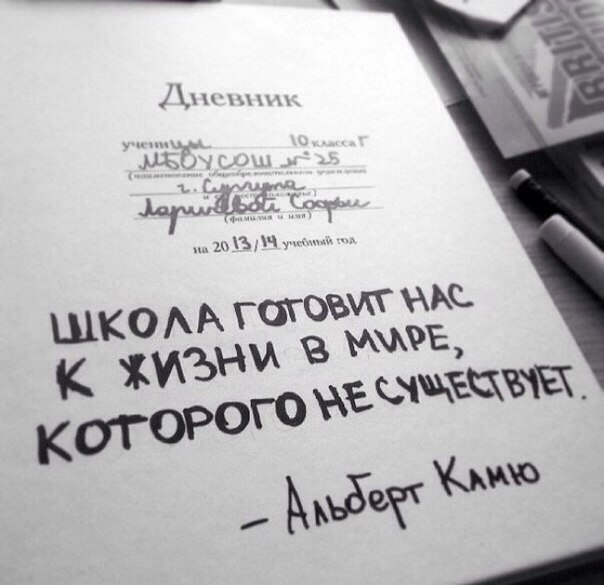 Дневник
ученицы 10 класса Г
МБОУСОШ №25
(наименование общеобразовательного учреждения
г. Сургута
и местоположение)
Лариновой Софьи
(фамилия и имя)
на 20 13/14 учебный год
ШКОЛА ГОТОВИТ НАС
К ЖИЗНИ В МИРЕ,
КОТОРОГО НЕ СУЩЕСТВУЕТ.
– Альберт Камю